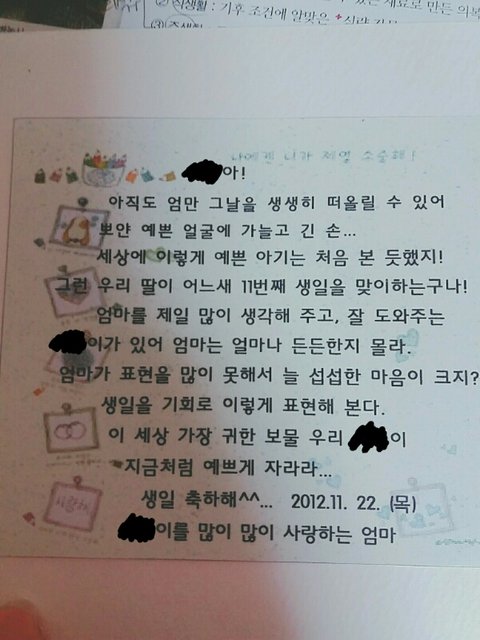 ② 식생활 : 기후 조건에 알맞은
재료로 만든 의복
나에겐 니가 제일 소중해!
아!
아직도 엄만 그날을 생생히 떠올릴 수 있어
뽀얀 예쁜 얼굴에 가늘고 긴 손...
세상에 이렇게 예쁜 아기는 처음 본 듯했지!
그런 우리 딸이 어느새 11번째 생일을 맞이하는구나!
엄마를 제일 많이 생각해 주고, 잘 도와주는
이가 있어 엄마는 얼마나 든든한지 몰라.
엄마가 표현을 많이 못해서 늘 섭섭한 마음이 크지?
생일을 기회로 이렇게 표현해 본다.
이 세상 가장 귀한 보물 우리 이
지금처럼 예쁘게 자라라...
사랑해
생일 축하해^^... 2012.11. 22. (목)
이를 많이 많이 사랑하는 엄마